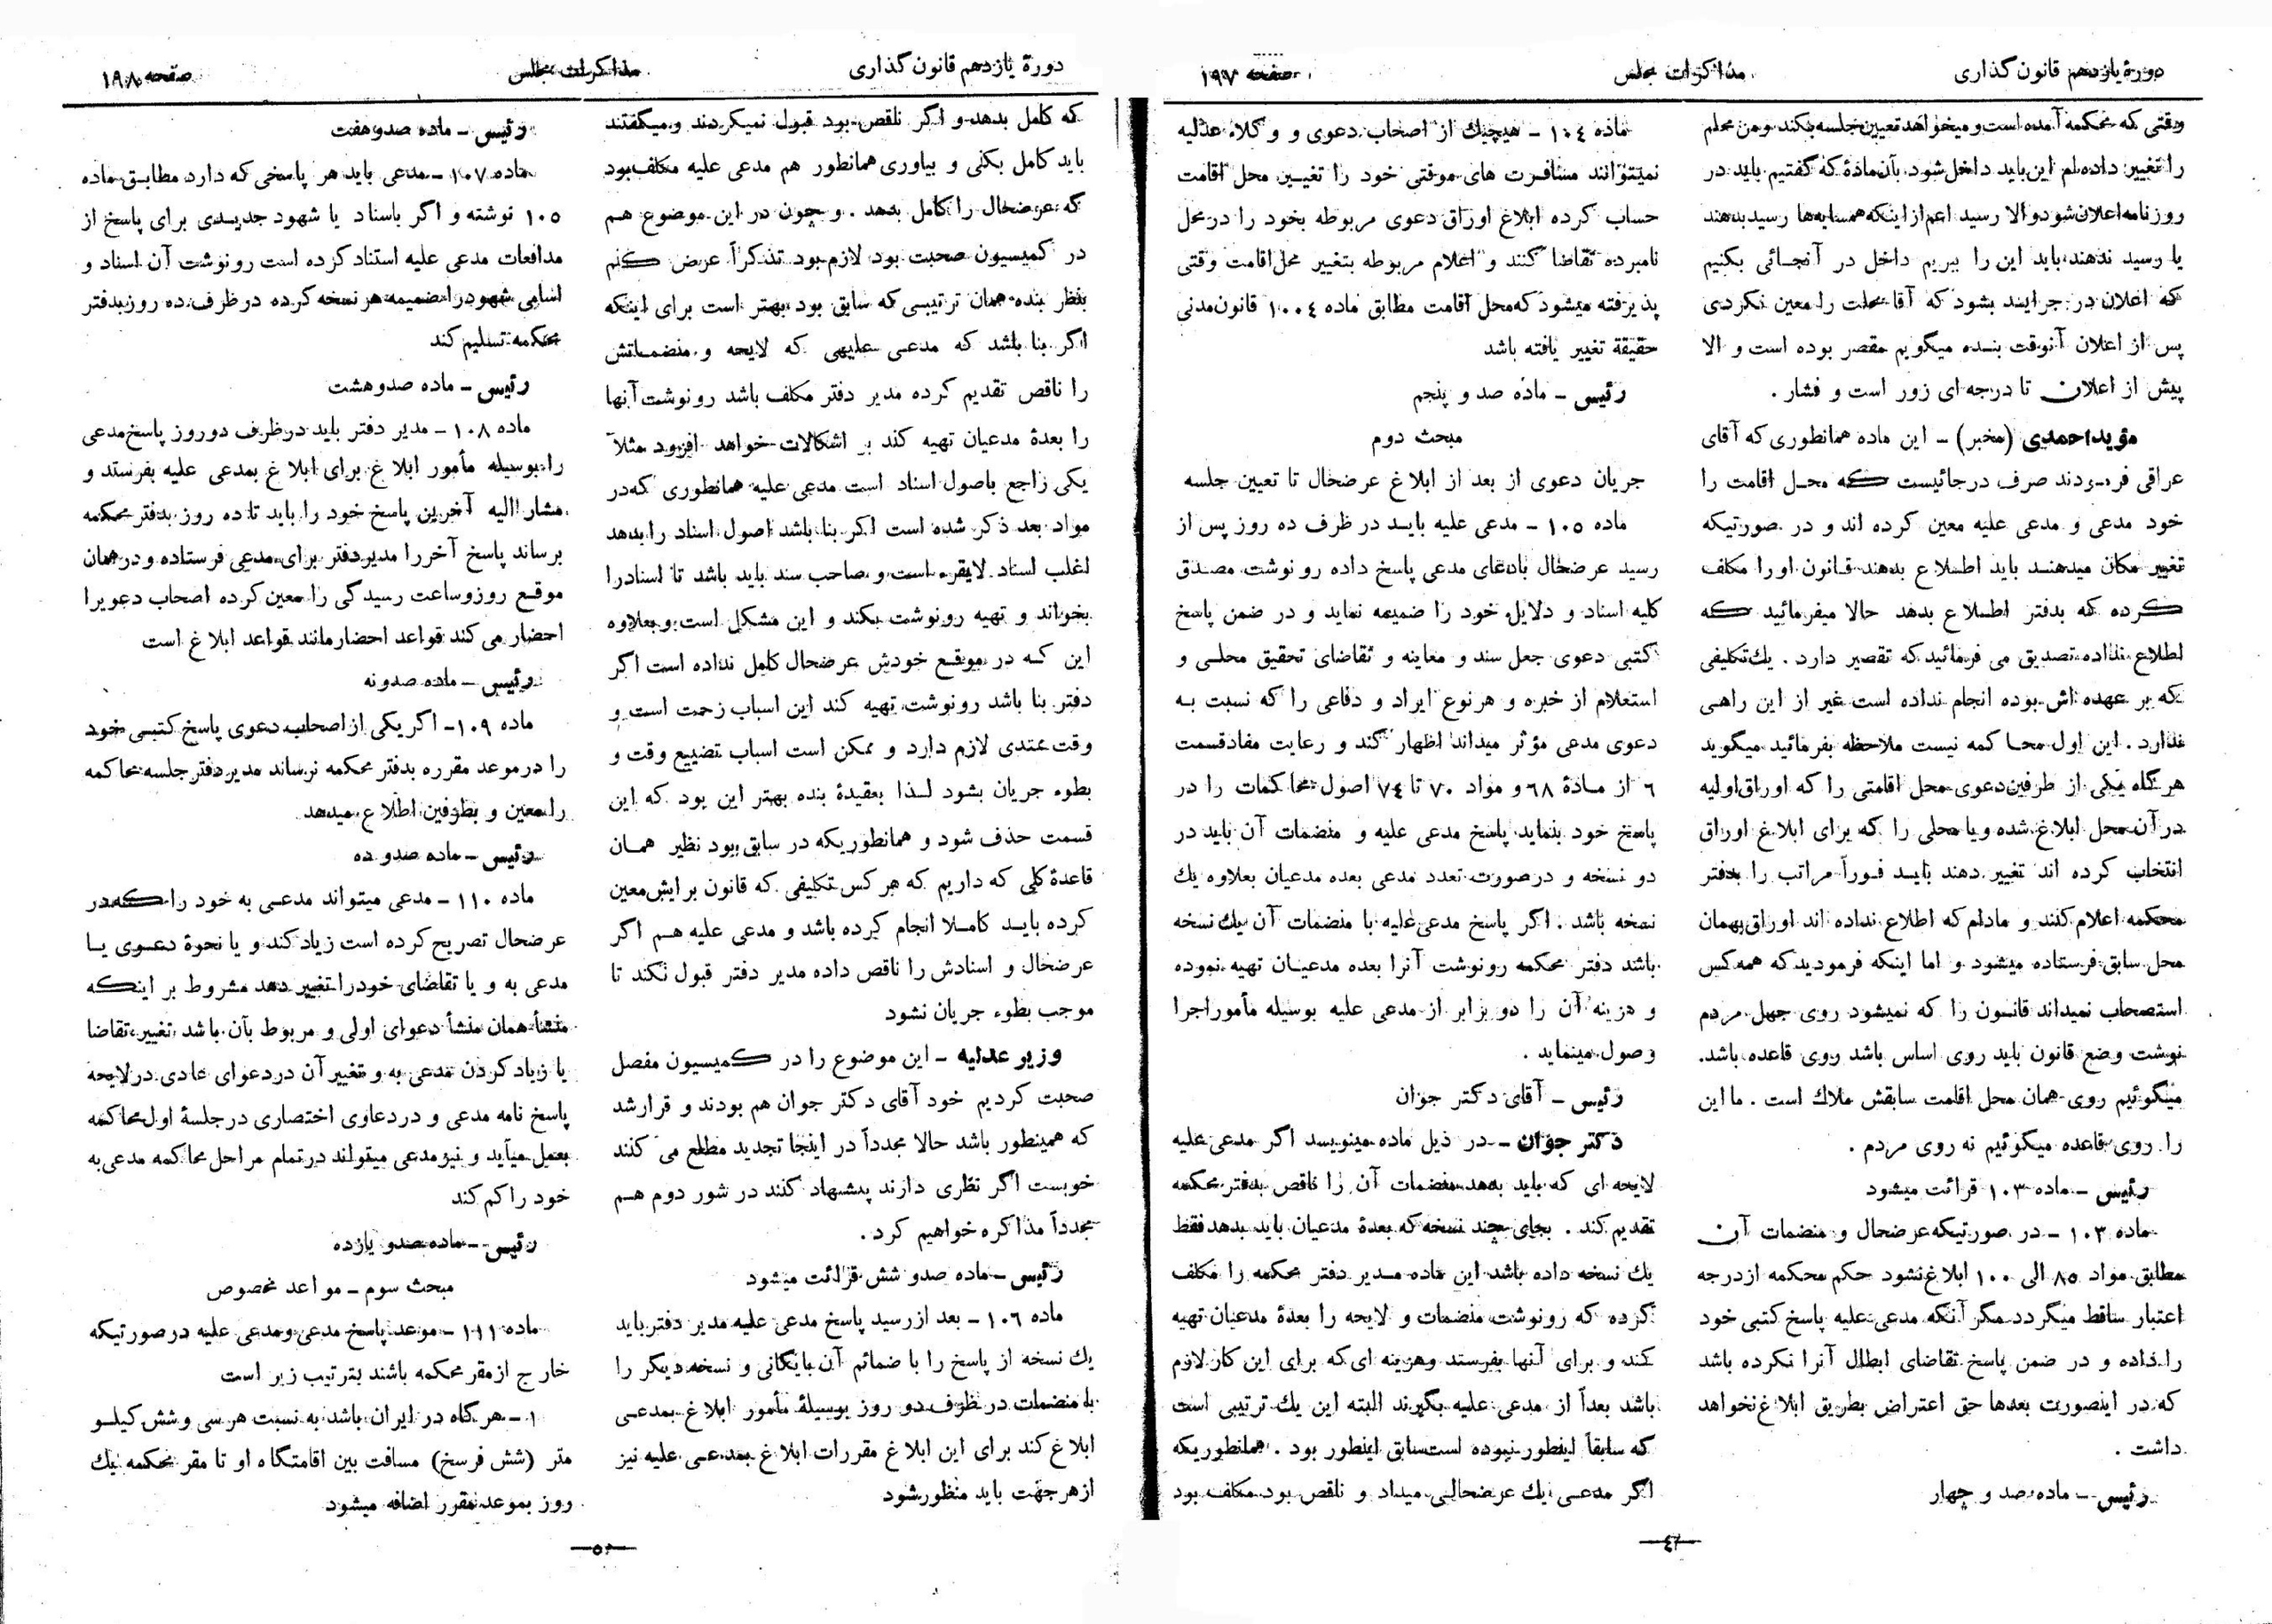 دورهٔ یازدهم قانون گذاری
مذاکرات مجلس
صفحه ۱۹۷
وقتی که محکمه آمده است و میخواهد تعیین جلسه بکند و من محلم
را تغییر داده‌ام این باید داخل شود بآن مادهٔ که گفتیم باید در
روزنامه اعلان شود والا رسید اعم از اینکه همسایه‌ها رسید بدهند
یا رسید ندهند باید این را ببریم داخل در آنجائی بکنیم
که اعلان در جراید بشود که آقا محلت را معین نکردی
پس از اعلان آنوقت بنده میگویم مقصر بوده است و الا
پیش از اعلان تا درجه ای زور است و فشار .
مؤید احمدی (مخبر) – این ماده همانطوری که آقای
عراقی فرمودند صرف در جائیست که محل اقامت را
خود مدعی و مدعی علیه معین کرده اند و در صورتیکه
تغییر مکان میدهند باید اطلاع بدهند قانون او را مکلف
کرده که بدفتر اطلاع بدهد حالا میفرمائید که
اطلاع نداده تصدیق می فرمائید که تقصیر دارد . یك تکلیفی
که بر عهده اش بوده انجام نداده است غیر از این راهی
ندارد . این اول محاکمه نیست ملاحظه بفرمائید میگوید
هر گاه یکی از طرفین دعوی محل اقامتی را که اوراق اولیه
در آن محل ابلاغ شده و یا محلی را که برای ابلاغ اوراق
انتخاب کرده اند تغییر دهند باید فوراً مراتب را بدفتر
محکمه اعلام کنند و مادام که اطلاع نداده اند اوراق بهمان
محل سابق فرستاده میشود و اما اینکه فرمودید که همه کس
استصحاب نمیداند قانون را که نمیشود روی جهل مردم
نوشت وضع قانون باید روی اساس باشد روی قاعده باشد.
میگوئیم روی همان محل اقامت سابقش ملاك است . ما این
را روی قاعده میگوئیم نه روی مردم .
رئیس – ماده ۱۰۳ قرائت میشود
ماده ۱۰۳ – در صورتیکه عرضحال و منضمات آن
مطابق مواد ۸۵ الی ۱۰۰ ابلاغ نشود حکم محکمه از درجه
اعتبار ساقط میگردد مگر آنکه مدعی علیه پاسخ کتبی خود
را داده و در ضمن پاسخ تقاضای ابطال آنرا نکرده باشد
که در اینصورت بعدها حق اعتراض بطریق ابلاغ نخواهد
داشت .
رئیس – ماده صد و چهار
ماده ۱۰٤ – هیچیك از اصحاب دعوی و وکلاء عدلیه
نمیتوانند مسافرت های موقتی خود را تغییر محل اقامت
حساب کرده ابلاغ اوراق دعوی مربوطه بخود را در محل
نامبرده تقاضا کنند و اعلام مربوطه بتغییر محل اقامت وقتی
پذیرفته میشود که محل اقامت مطابق ماده ۱۰۰٤ قانون مدنی
حقیقة تغییر یافته باشد
رئیس – ماده صد و پنجم
مبحث دوم
جریان دعوی از بعد از ابلاغ عرضحال تا تعیین جلسه
ماده ۱۰٥ – مدعی علیه باید در ظرف ده روز پس از
رسید عرضحال بادعای مدعی پاسخ داده رونوشت مصدق
کلیه اسناد و دلایل خود را ضمیمه نماید و در ضمن پاسخ
کتبی دعوی جعل سند و معاینه و تقاضای تحقیق محلی و
استعلام از خبره و هر نوع ایراد و دفاعی را که نسبت به
دعوی مدعی مؤثر میداند اظهار کند و رعایت مفاد قسمت
٦ از مادهٔ ٦۸ و مواد ۷۰ تا ۷٤ اصول محاکمات را در
پاسخ خود بنماید پاسخ مدعی علیه و منضمات آن باید در
دو نسخه و در صورت تعدد مدعی بعده مدعیان بعلاوه یك
نسخه باشد . اگر پاسخ مدعی علیه با منضمات آن یك نسخه
باشد دفتر محکمه رونوشت آنرا بعده مدعیان تهیه نموده
و هزینه آن را دو برابر از مدعی علیه بوسیله مأمور اجرا
وصول مینماید .
رئیس – آقای دکتر جوان
دکتر جوان – در ذیل ماده مینویسد اگر مدعی علیه
لایحه ای که باید بدهد منضمات آن را ناقص بدفتر محکمه
تقدیم کند . بجای چند نسخه که بعدهٔ مدعیان باید بدهد فقط
یك نسخه داده باشد این ماده مدیر دفتر محکمه را مکلف
کرده که رونوشت منضمات و لایحه را بعدهٔ مدعیان تهیه
کند و برای آنها بفرستد و هزینه ای که برای این کار لازم
باشد بعداً از مدعی علیه بگیرند البته این یك ترتیبی است
که سابقاً اینطور نبوده است سابق اینطور بود . همانطوریکه
اگر مدعی یك عرضحالی میداد و ناقص بود مکلف بود
٤
دورهٔ یازدهم قانون گذاری
مذاکرات مجلس
صفحه ۱۹۸
که کامل بدهد و اگر ناقص بود قبول نمیکردند و میگفتند
باید کامل بکنی و بیاوری همانطور هم مدعی علیه مکلف بود
که عرضحال را کامل بدهد . و چون در این موضوع هم
در کمیسیون صحبت بود لازم بود تذکراً عرض کنم
بنظر بنده همان ترتیبی که سابق بود بهتر است برای اینکه
اگر بنا باشد که مدعی علیهی که لایحه و منضماتش
را ناقص تقدیم کرده مدیر دفتر مکلف باشد رونوشت آنها
را بعدهٔ مدعیان تهیه کند بر اشکالات خواهد افزود مثلاً
یکی راجع باصول اسناد است مدعی علیه همانطوری که در
مواد بعد ذکر شده است اگر بنا باشد اصول اسناد را بدهد
اغلب اسناد لایقرء است و صاحب سند باید باشد تا اسناد را
بخواند و تهیه رونوشت بکند و این مشکل است و بعلاوه
این که در موقع خودش عرضحال کامل نداده است اگر
دفتر بنا باشد رونوشت تهیه کند این اسباب زحمت است و
وقت ممتدی لازم دارد و ممکن است اسباب تضییع وقت و
بطوء جریان بشود لذا بعقیدهٔ بنده بهتر این بود که این
قسمت حذف شود و همانطوریکه در سابق بود نظیر همان
قاعدهٔ کلی که داریم که هر کس تکلیفی که قانون برایش معین
کرده باید کاملا انجام کرده باشد و مدعی علیه هم اگر
عرضحال و اسنادش را ناقص داده مدیر دفتر قبول نکند تا
موجب بطوء جریان نشود
وزیر عدلیه – این موضوع را در کمیسیون مفصل
صحبت کردیم خود آقای دکتر جوان هم بودند و قرار شد
که همینطور باشد حالا مجدداً در اینجا تجدید مطلع می کنند
خوبست اگر نظری دارند پیشنهاد کنند در شور دوم هم
مجدداً مذاکره خواهیم کرد .
رئیس – ماده صدو شش قرائت میشود
ماده ۱۰٦ – بعد از رسید پاسخ مدعی علیه مدیر دفتر باید
یك نسخه از پاسخ را با ضمائم آن بایگانی و نسخه دیگر را
با منضمات در ظرف دو روز بوسیلهٔ مأمور ابلاغ بمدعی
ابلاغ کند برای این ابلاغ مقررات ابلاغ بمدعی علیه نیز
از هر جهت باید منظور شود
رئیس – ماده صدو هفت
ماده ۱۰۷ – مدعی باید هر پاسخی که دارد مطابق ماده
۱۰٥ نوشته و اگر باسناد یا شهود جدیدی برای پاسخ از
مدافعات مدعی علیه استناد کرده است رونوشت آن اسناد و
اسامی شهود را ضمیمه هر نسخه کرده در ظرف ده روز بدفتر
محکمه تسلیم کند
رئیس – ماده صدو هشت
ماده ۱۰۸ – مدیر دفتر باید در ظرف دو روز پاسخ مدعی
را بوسیله مأمور ابلاغ برای ابلاغ بمدعی علیه بفرستد و
مشارالیه آخرین پاسخ خود را باید تا ده روز بدفتر محکمه
برساند پاسخ آخر را مدیر دفتر برای مدعی فرستاده و در همان
موقع روز و ساعت رسیدگی را معین کرده اصحاب دعوی را
احضار می کند قواعد احضار مانند قواعد ابلاغ است
رئیس – ماده صدو نه
ماده ۱۰۹ – اگر یکی از اصحاب دعوی پاسخ کتبی خود
را در موعد مقرره بدفتر محکمه نرساند مدیر دفتر جلسه محاکمه
را معین و بطرفین اطلاع میدهد
رئیس – ماده صدو ده
ماده ۱۱۰ – مدعی میتواند مدعی به خود را که در
عرضحال تصریح کرده است زیاد کند و یا نحوهٔ دعوی یا
مدعی به و یا تقاضای خود را تغییر دهد مشروط بر اینکه
منشأ همان منشأ دعوای اولی و مربوط بآن باشد تغییر تقاضا
یا زیاد کردن مدعی به و تغییر آن در دعوای عادی در لایحه
پاسخ نامه مدعی و در دعاوی اختصاری در جلسهٔ اول محاکمه
بعمل میآید و نیز مدعی میتواند در تمام مراحل محاکمه مدعی به
خود را کم کند
رئیس – ماده صدو یازده
مبحث سوم – مواعد مخصوص
ماده ۱۱۱ – موعد پاسخ مدعی و مدعی علیه در صورتیکه
خارج از مقر محکمه باشند بترتیب زیر است
۱ – هر گاه در ایران باشد به نسبت هر سی و شش کیلو
متر (شش فرسخ) مسافت بین اقامتگاه او تا مقر محکمه یك
روز بموعد مقرر اضافه میشود
۵